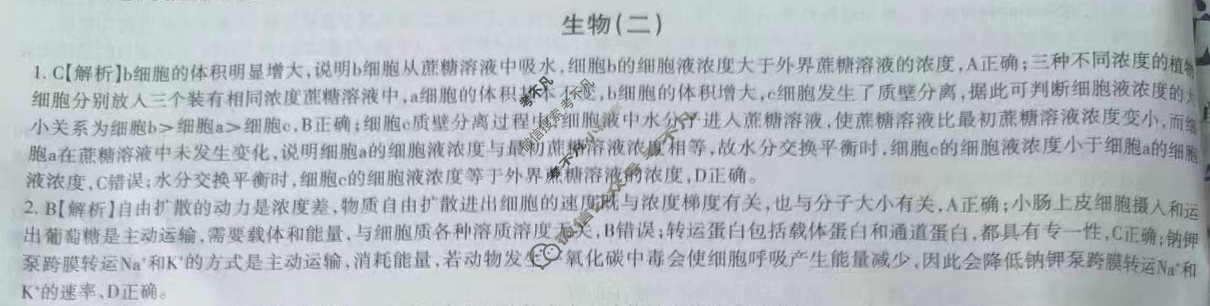 生物(二)
1. C【解析】b细胞的体积明显增大,说明b细胞从蔗糖溶液中吸水,细胞b的细胞液浓度大于外界蔗糖溶液的浓度,A正确;三种不同浓度的植物
细胞分别放入三个装有相同浓度蔗糖溶液中,a细胞的体积基本不变,b细胞的体积增大,c细胞发生了质壁分离,据此可判断细胞液浓度的大
小关系为细胞b>细胞a>细胞c,B正确;细胞c质壁分离过程中细胞液中水分子进入蔗糖溶液,使蔗糖溶液比最初蔗糖溶液浓度变小,而细
胞a在蔗糖溶液中未发生变化,说明细胞a的细胞液浓度与最初蔗糖溶液浓度相等,故水分交换平衡时,细胞c的细胞液浓度小于细胞a的细胞
液浓度,C错误;水分交换平衡时,细胞c的细胞液浓度等于外界蔗糖溶液的浓度,D正确。
2. B【解析】自由扩散的动力是浓度差,物质自由扩散进出细胞的速度既与浓度梯度有关,也与分子大小有关,A正确;小肠上皮细胞摄入和运
出葡萄糖是主动运输,需要载体和能量,与细胞质各种溶质溶度无关,B错误;转运蛋白包括载体蛋白和通道蛋白,都具有专一性,C正确;钠钾
泵跨膜转运Na⁺和K⁺的方式是主动运输,消耗能量,若动物发生一氧化碳中毒会使细胞呼吸产生能量减少,因此会降低钠钾泵跨膜转运Na⁺和
K⁺的速率,D正确。